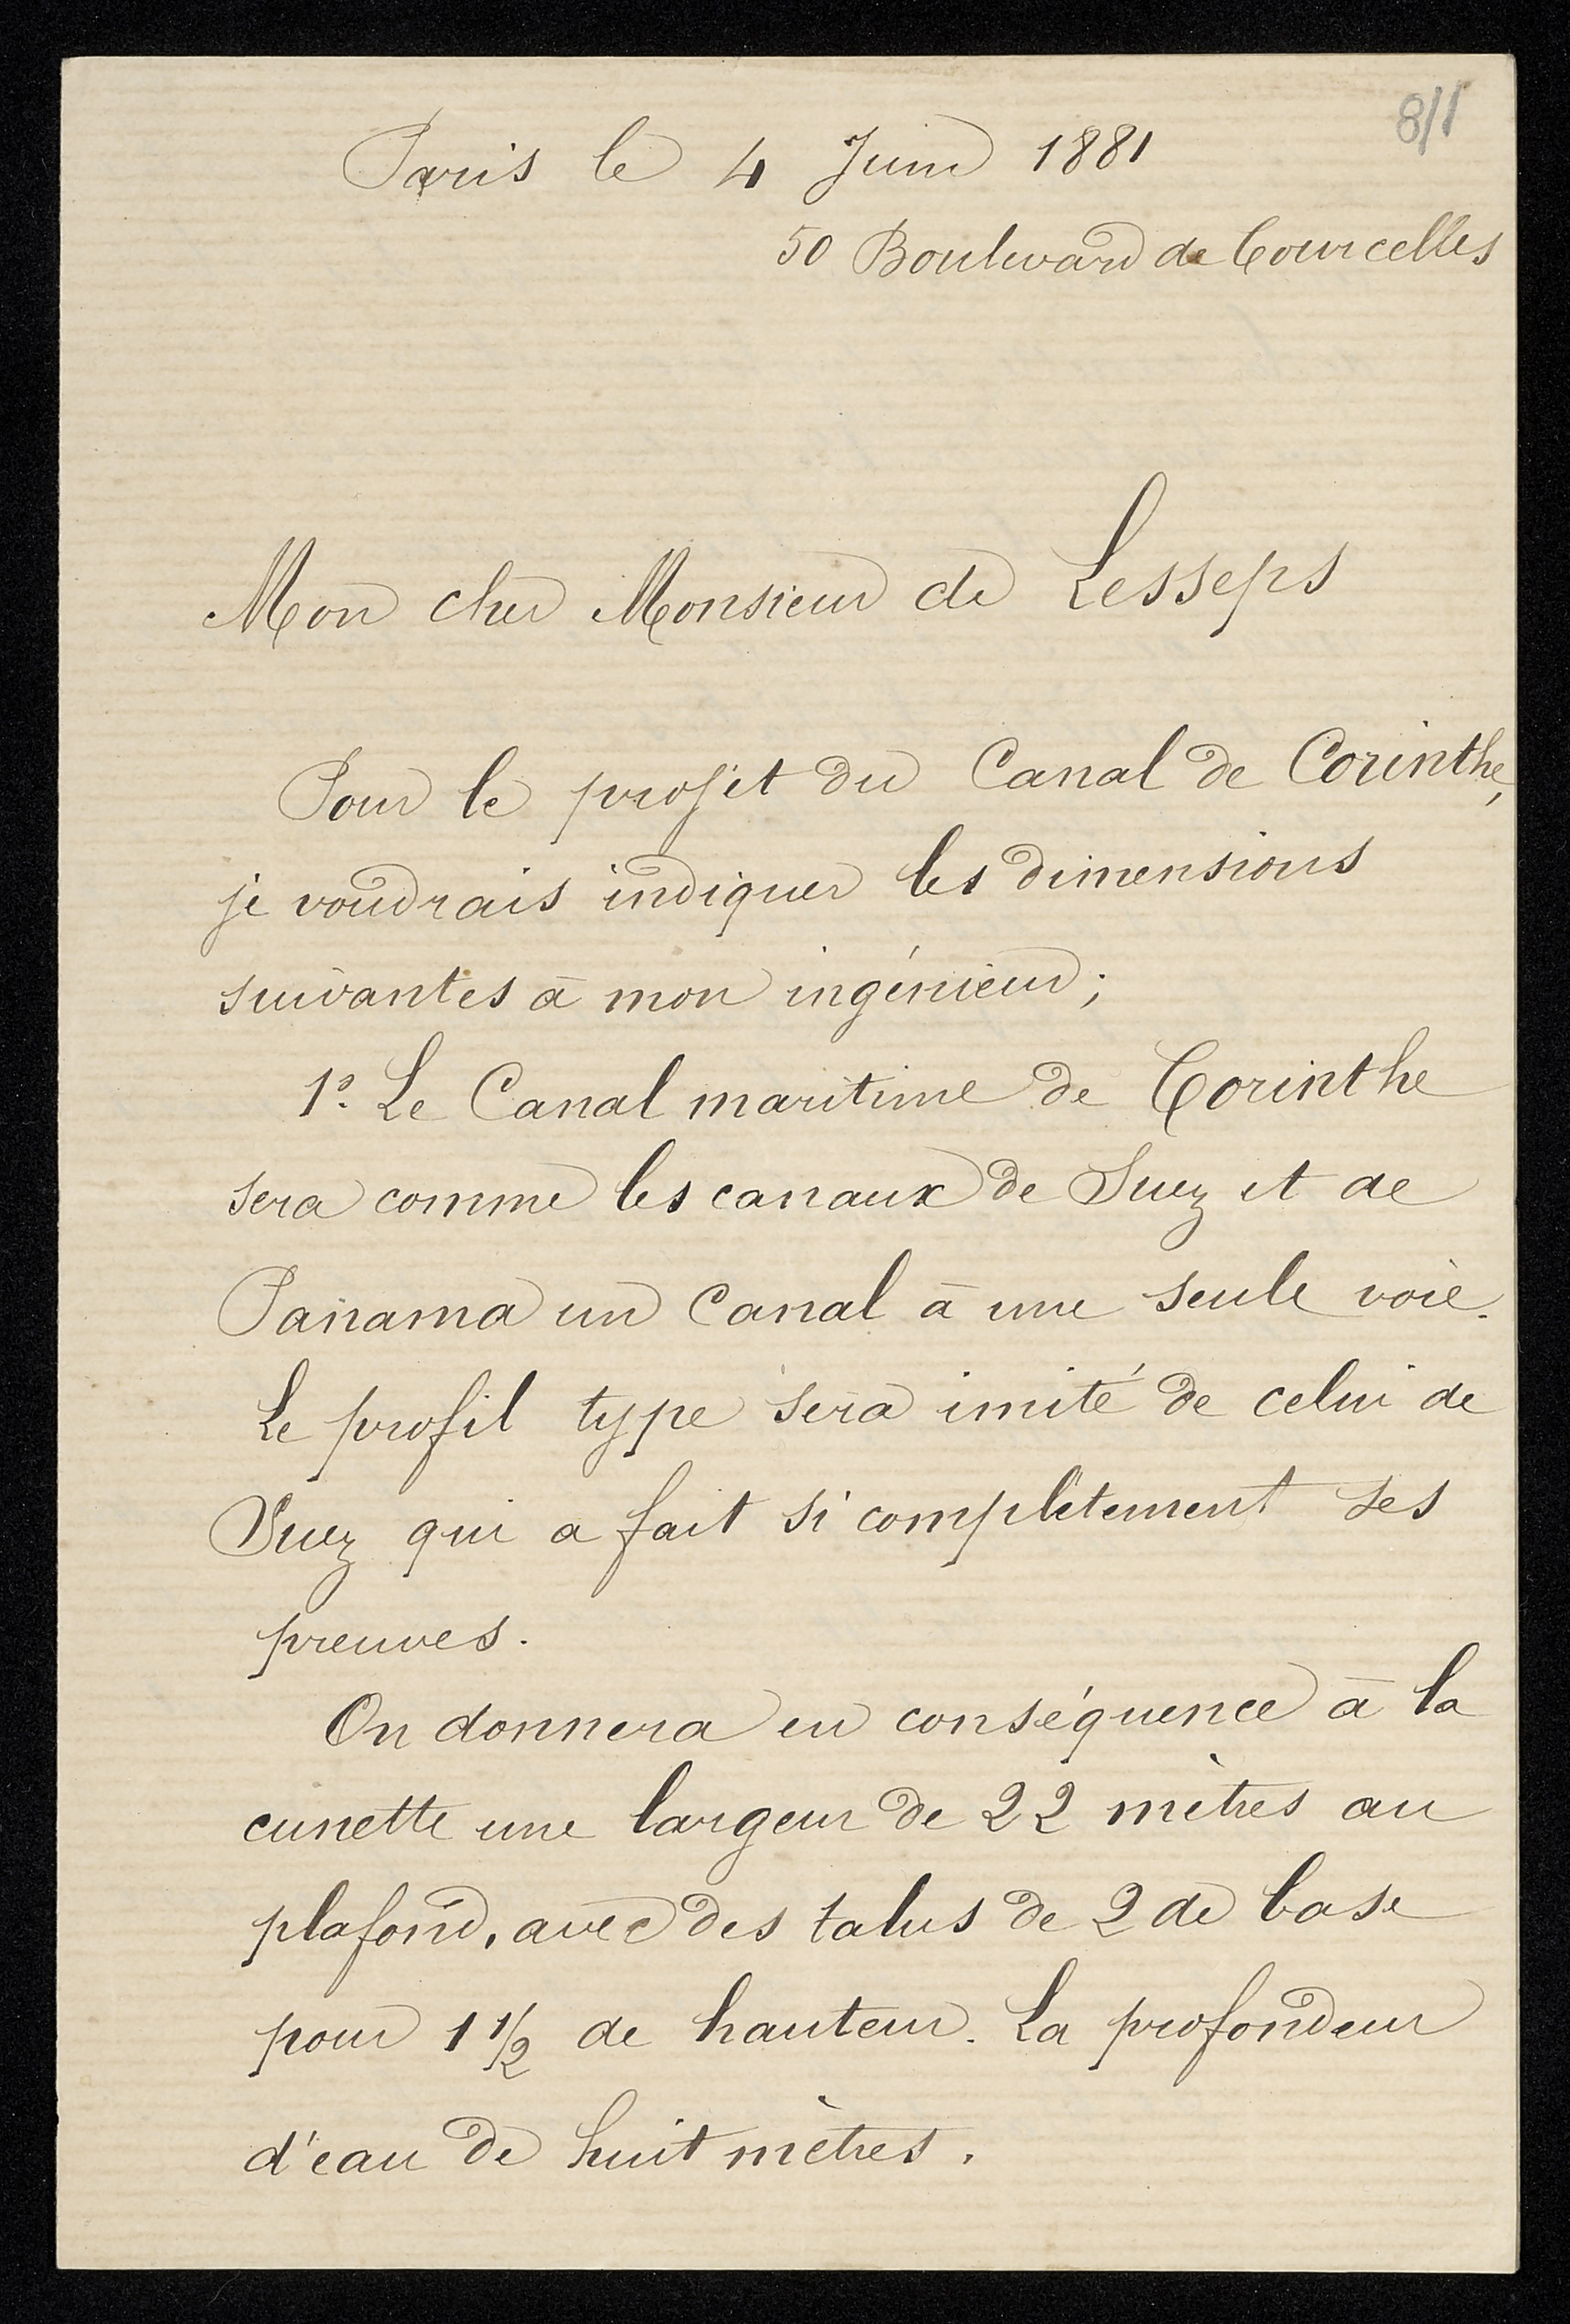 8/1
Paris le 4 Juin 1881
50 Boulevard de Courcelles
Mon cher Monsieur de Lesseps
Pour le projet du Canal de Corinthe,
je voudrais indiquer les dimensions
suivantes à mon ingénieur;
1º. Le Canal maritime de Corinthe
sera comme les canaux de Suez et de
Panama un Canal à une seule voie.
Le profil type sera imité de celui de
Suez qui a fait si complètement ses
preuves.
On donnera en conséquence à la
cunette une largeur de 22 mètres au
plafond, avec des talus de 2 de base
pour 1 1/2 de hauteur. La profondeur
d'eau de huit mètres.